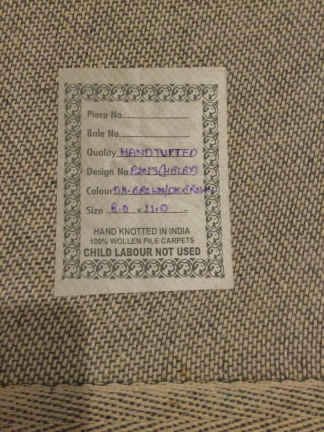 Piece No
Bale No
Quality HANDTUFTED
Design No
Colour DK-BROWN/DK.BROWN
Size 8.0 x 11.0
HAND KNOTTED IN INDIA
100% WOLLEN PILE CARPETS
CHILD LABOUR NOT USED